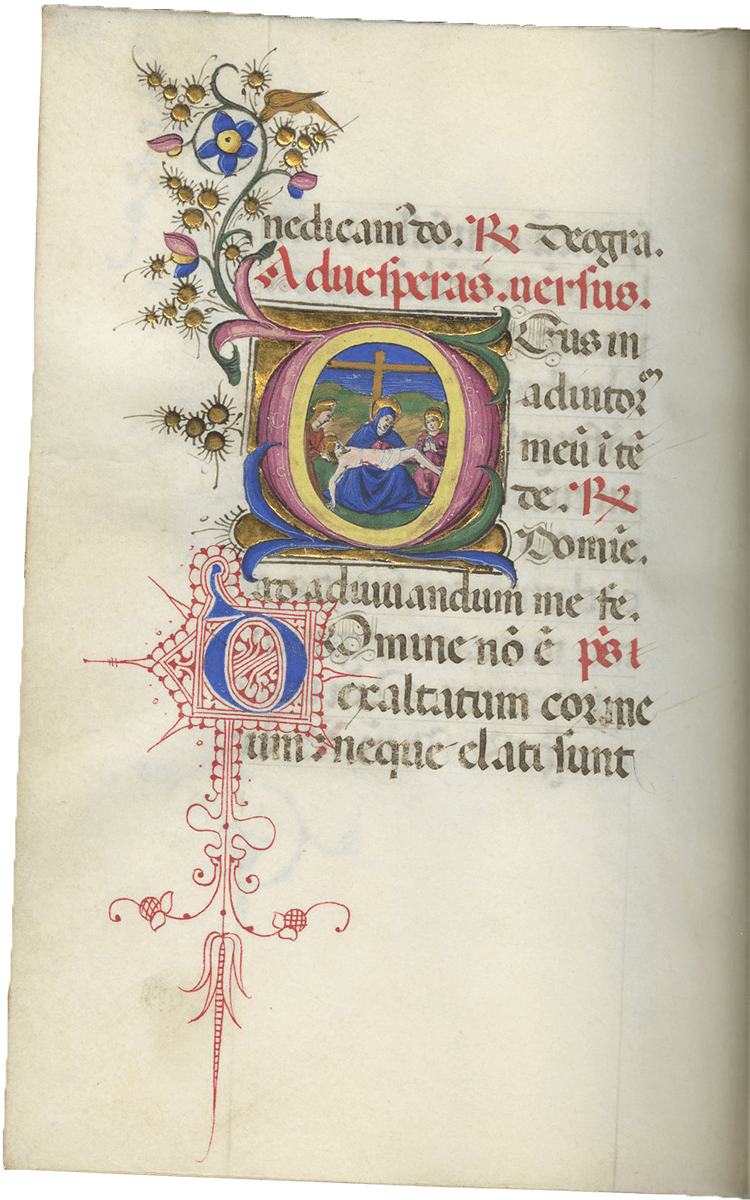 nedicam̄ dō. ℟ Deogra.
Aduesperas. uersus.
Eus in
adiutorᵉᵐ
meū ītē
de. ℟
Domīe.
ad adiuuandum me fe.
Omine nō ē p̄s ı
exaltatum cor me
um : neque elati sunt